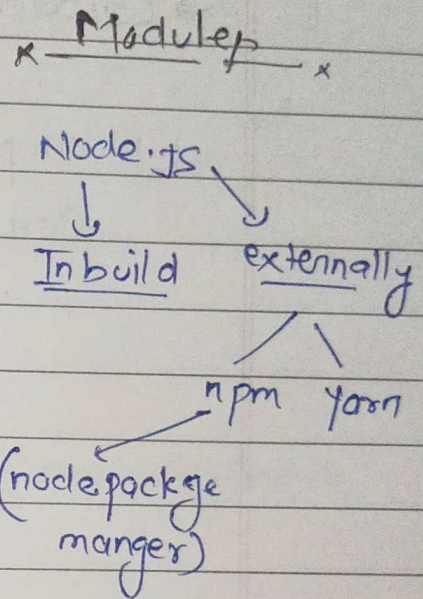 Modules
Node.JS
Inbuild externally
npm yarn
(node packge
manger)